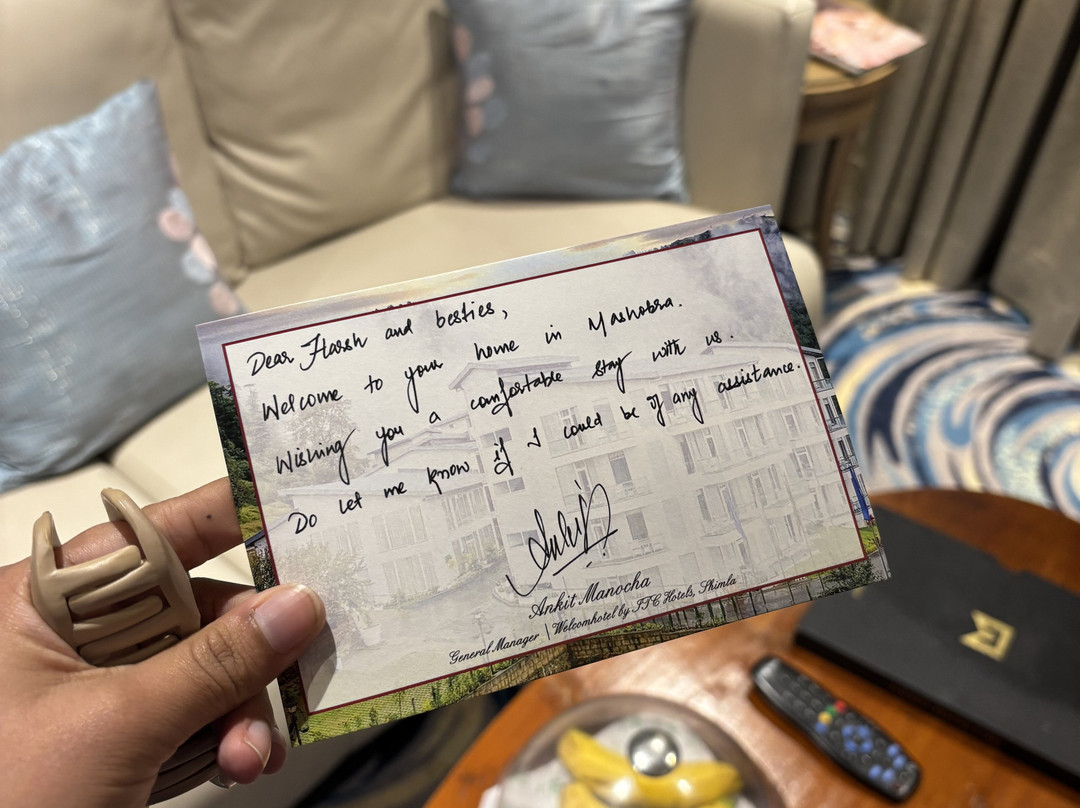 Dear Harsh and besties,
Welcome to your home in Mashobra.
Wishing you a comfortable stay with us.
Do let me know if I could be of any assistance.
Ankit
Ankit Manocha
General Manager | Welcomhotel by ITC Hotels, Shimla